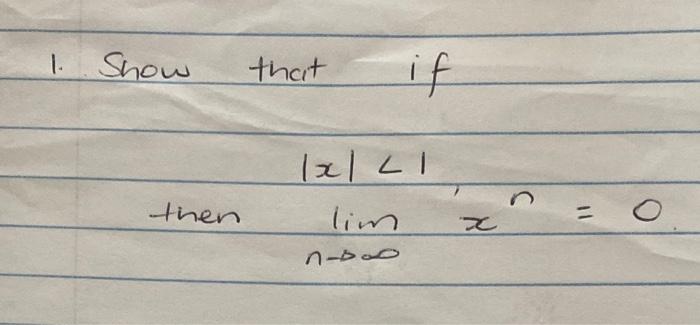 1. Show that if
|x| < 1
then lim x^n = 0.
n→∞